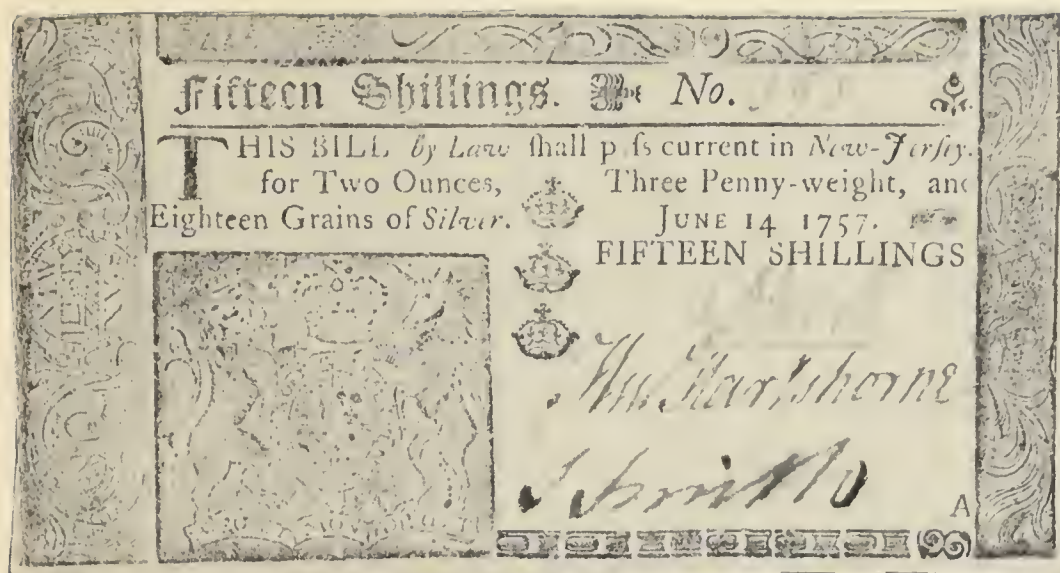 Fifteen Shillings. No.
THIS BILL by Law ſhall p ſs current in New-Jerſey.
for Two Ounces, Three Penny-weight, and
Eighteen Grains of Silver. JUNE 14 1757.
FIFTEEN SHILLINGS
Hartshorne
Smith
A